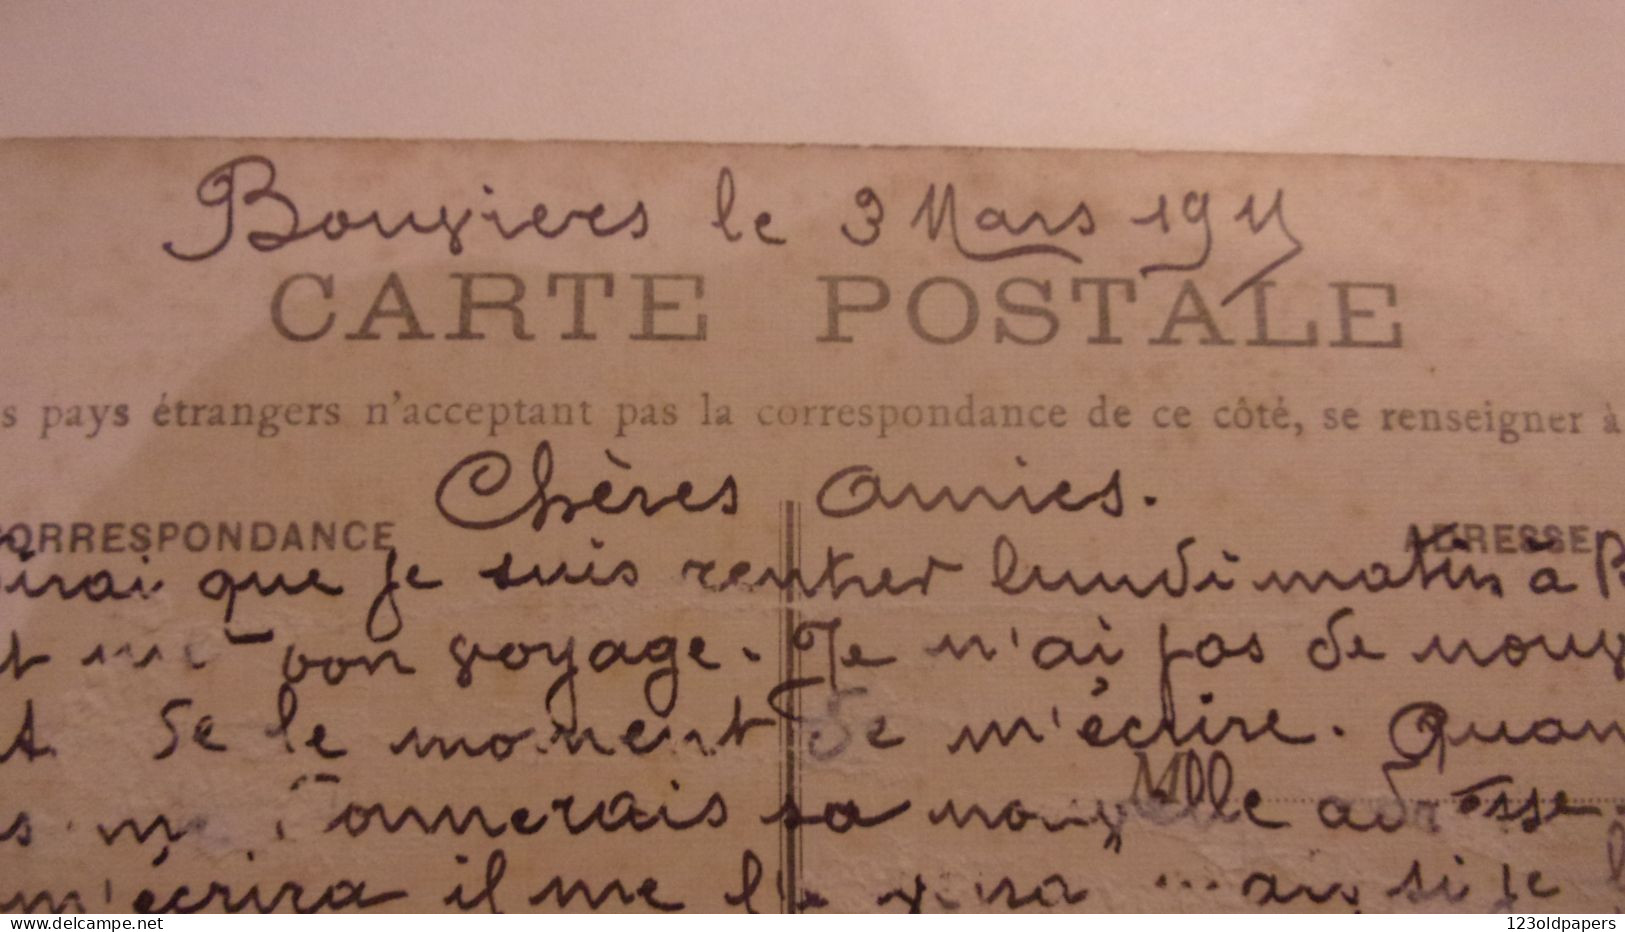 Bouviers le 3 Mars 1911
CARTE POSTALE
s pays étrangers n'acceptant pas la correspondance de ce côté, se renseigner à
Chères amies.
CORRESPONDANCE ADRESSE
dirai que je suis rentrer lundi matin à
t me bon voyage. Je n'ai pas de nouv
de le moment de m'écrire. Quan
s me donnerais sa nouvelle adresse.
Mlle
m'écrira il me le si je
delcampe.net
123oldpapers